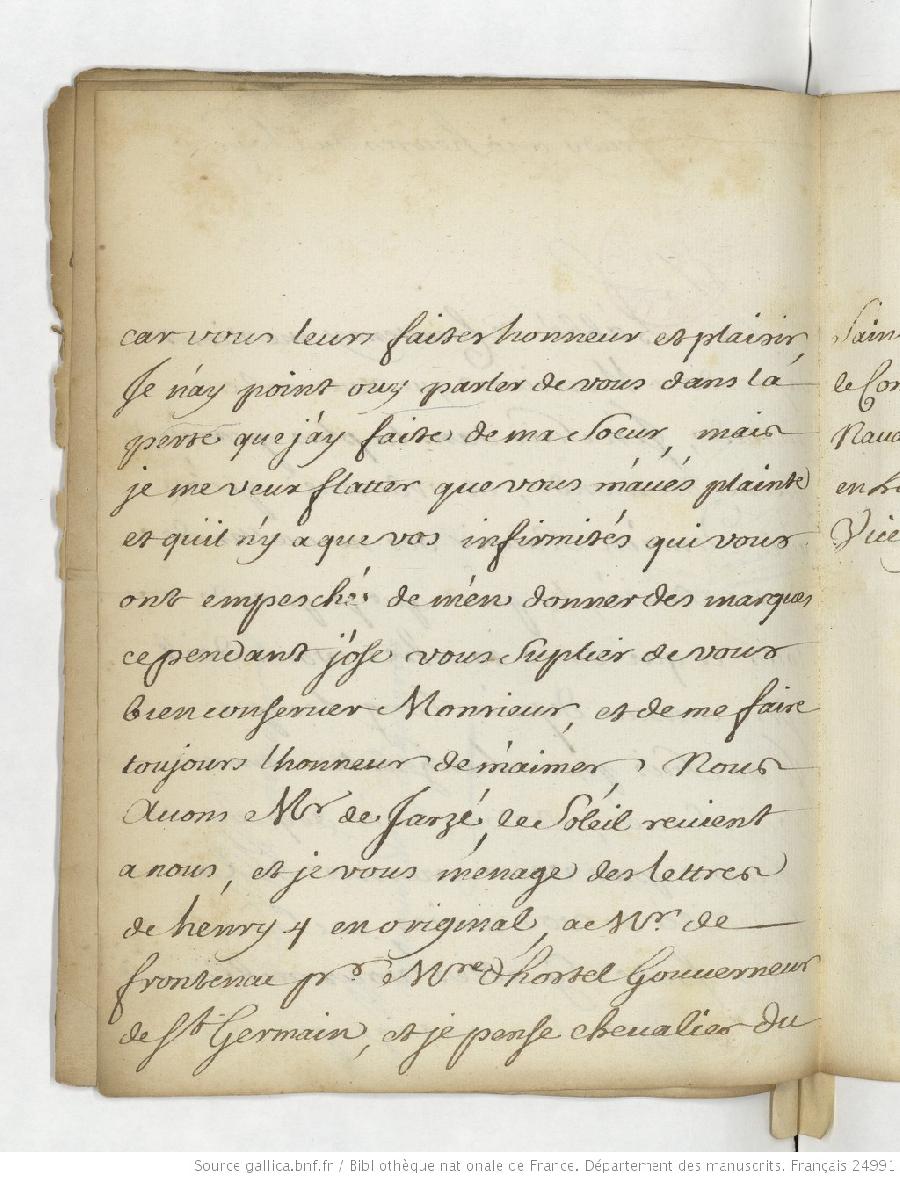 car vous leurs faites honneur et plaisir,
Je n'ay point ouy parler de vous dans la
perte que j'ay faite de ma Soeur, mais
je me veux flatter que vous m'avés plainte
et qu'il n'y a que vos infirmités qui vous
ont empesché de m'en donner des marques
cependant j'ose vous suplier de vous
bien conserver Monsieur, et de me faire
toujours l'honneur de m'aimer, Nous
Avons Mr de Jarzé, le Soleil revient
a nous, et je vous ménage des lettres
de henry 4 en original, a Mr. de
frontenac pr. Mre d'hostel Gouverneur
de St. Germain, et je pense chevalier du
Sain
le Co
Nava
en
Vice
Source gallica.bnf.fr / Bibliothèque nationale de France. Département des manuscrits. Français 24991